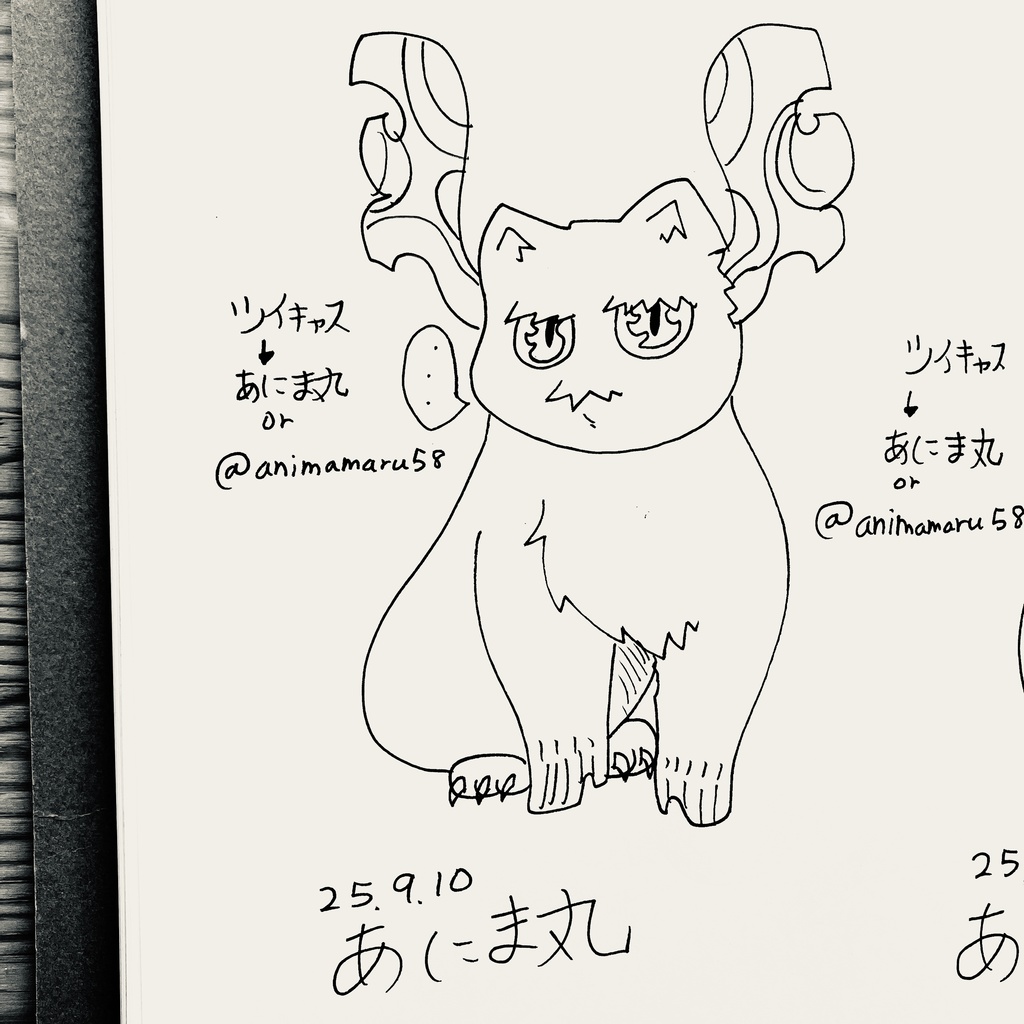 ツイキャス
↓
あにま丸
or
@animamaru58
...
ツイキャス
↓
あにま丸
or
@animamaru58
25.9.10
あにま丸
25
あ